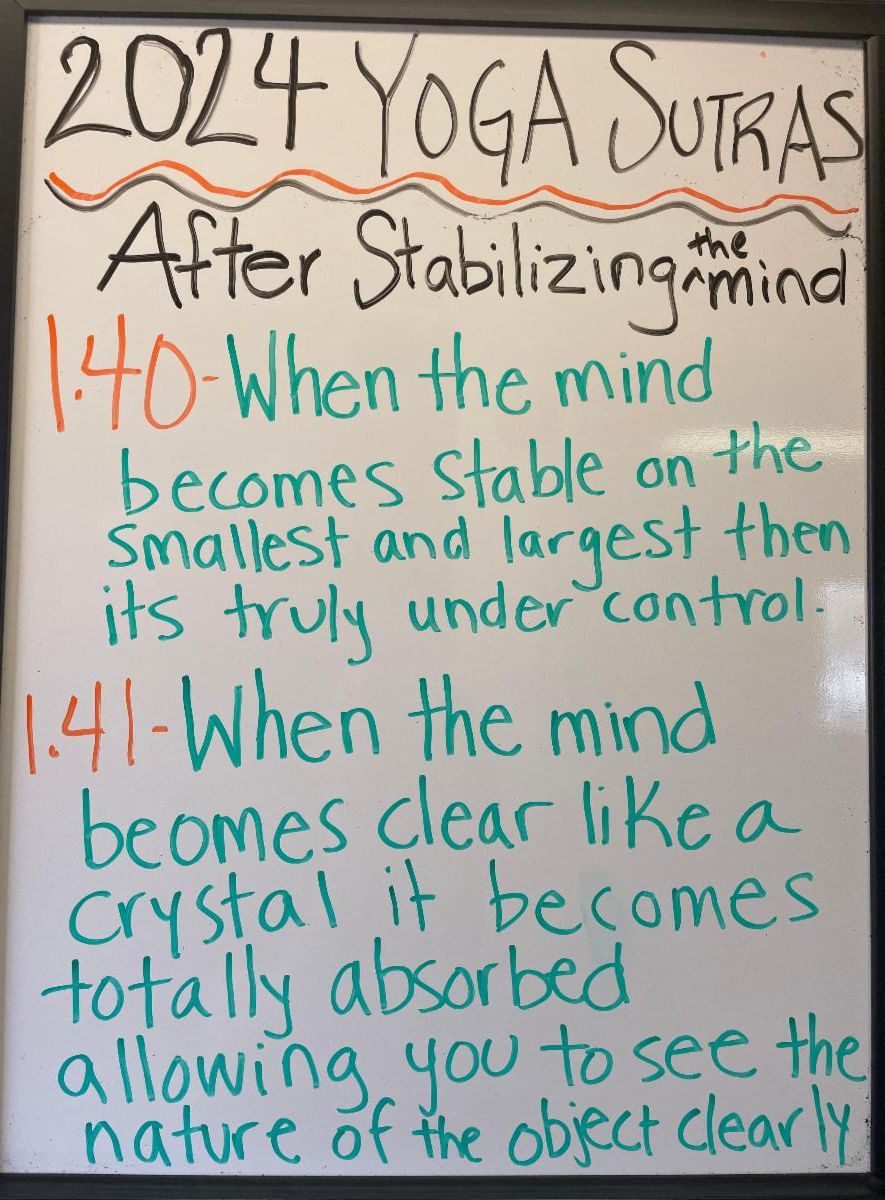 2024 YOGA SUTRAS
After Stabilizing ^the mind
1.40-When the mind
becomes stable on the
smallest and largest then
its truly under control.
1.41-When the mind
beomes clear like a
crystal it becomes
totally absorbed
allowing you to see the
nature of the object clearly